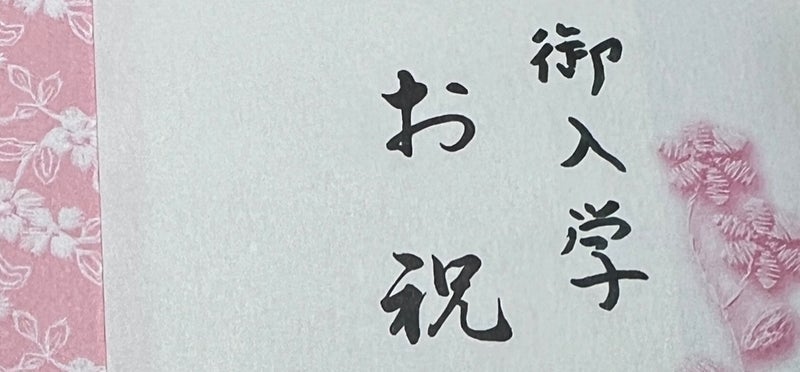 御入学
お祝